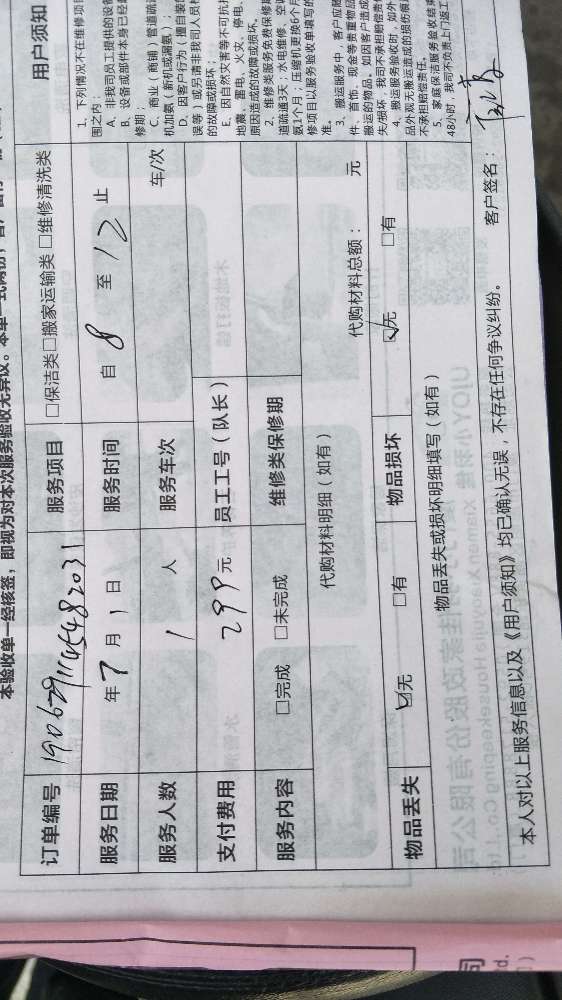 本验收单一经核签，即视为对本次服务验收无异议。本单一式两份，客户留存一
订单编号 1906291145482031 服务项目 □保洁类□搬家运输类 □维修清洗类
服务日期 年7月1日 服务时间 自 8 至 12 止
服务人数 1 人 服务车次 车/次
支付费用 299元 员工工号（队长）
服务内容 □完成 □未完成 维修类保修期
代购材料明细（如有） 代购材料总额： 元
物品丢失 ☑无 □有 物品损坏 ☑无 □有
物品丢失或损坏明细填写（如有）
本人对以上服务信息以及《用户须知》均已确认无误，不存在任何争议纠纷。 客户签名：
用户须知
1、下列情况不在维修项目
围之内：
A、非我司员工提供的设备
B、设备或部件本身已经超
修期；
C、商业（商铺）管道疏通
机加氨（新机或漏氨）；
D、因客户行为，擅自装
误等）或另请非我司人员检
的故障或损坏；
E、因自然灾害等不可抗
地震、雷电、火灾、停电、
原因造成的故障或损坏。
2、维修类服务免费保修期
道疏通3天；水电维修、空调
氨1个月；压缩机更换6个月
修项目以服务验收单填写的
准。
3、搬运服务中，客户应随
件、首饰、现金等贵重物品
搬运的物品。如因客户造成
失/损坏，我司不承担赔偿责
4、搬运服务验收时，如外
品外观无搬运造成的损伤痕
不承担赔偿责任。
5、家庭保洁服务验收结束
48小时，我司不负责上门返工
司
td.